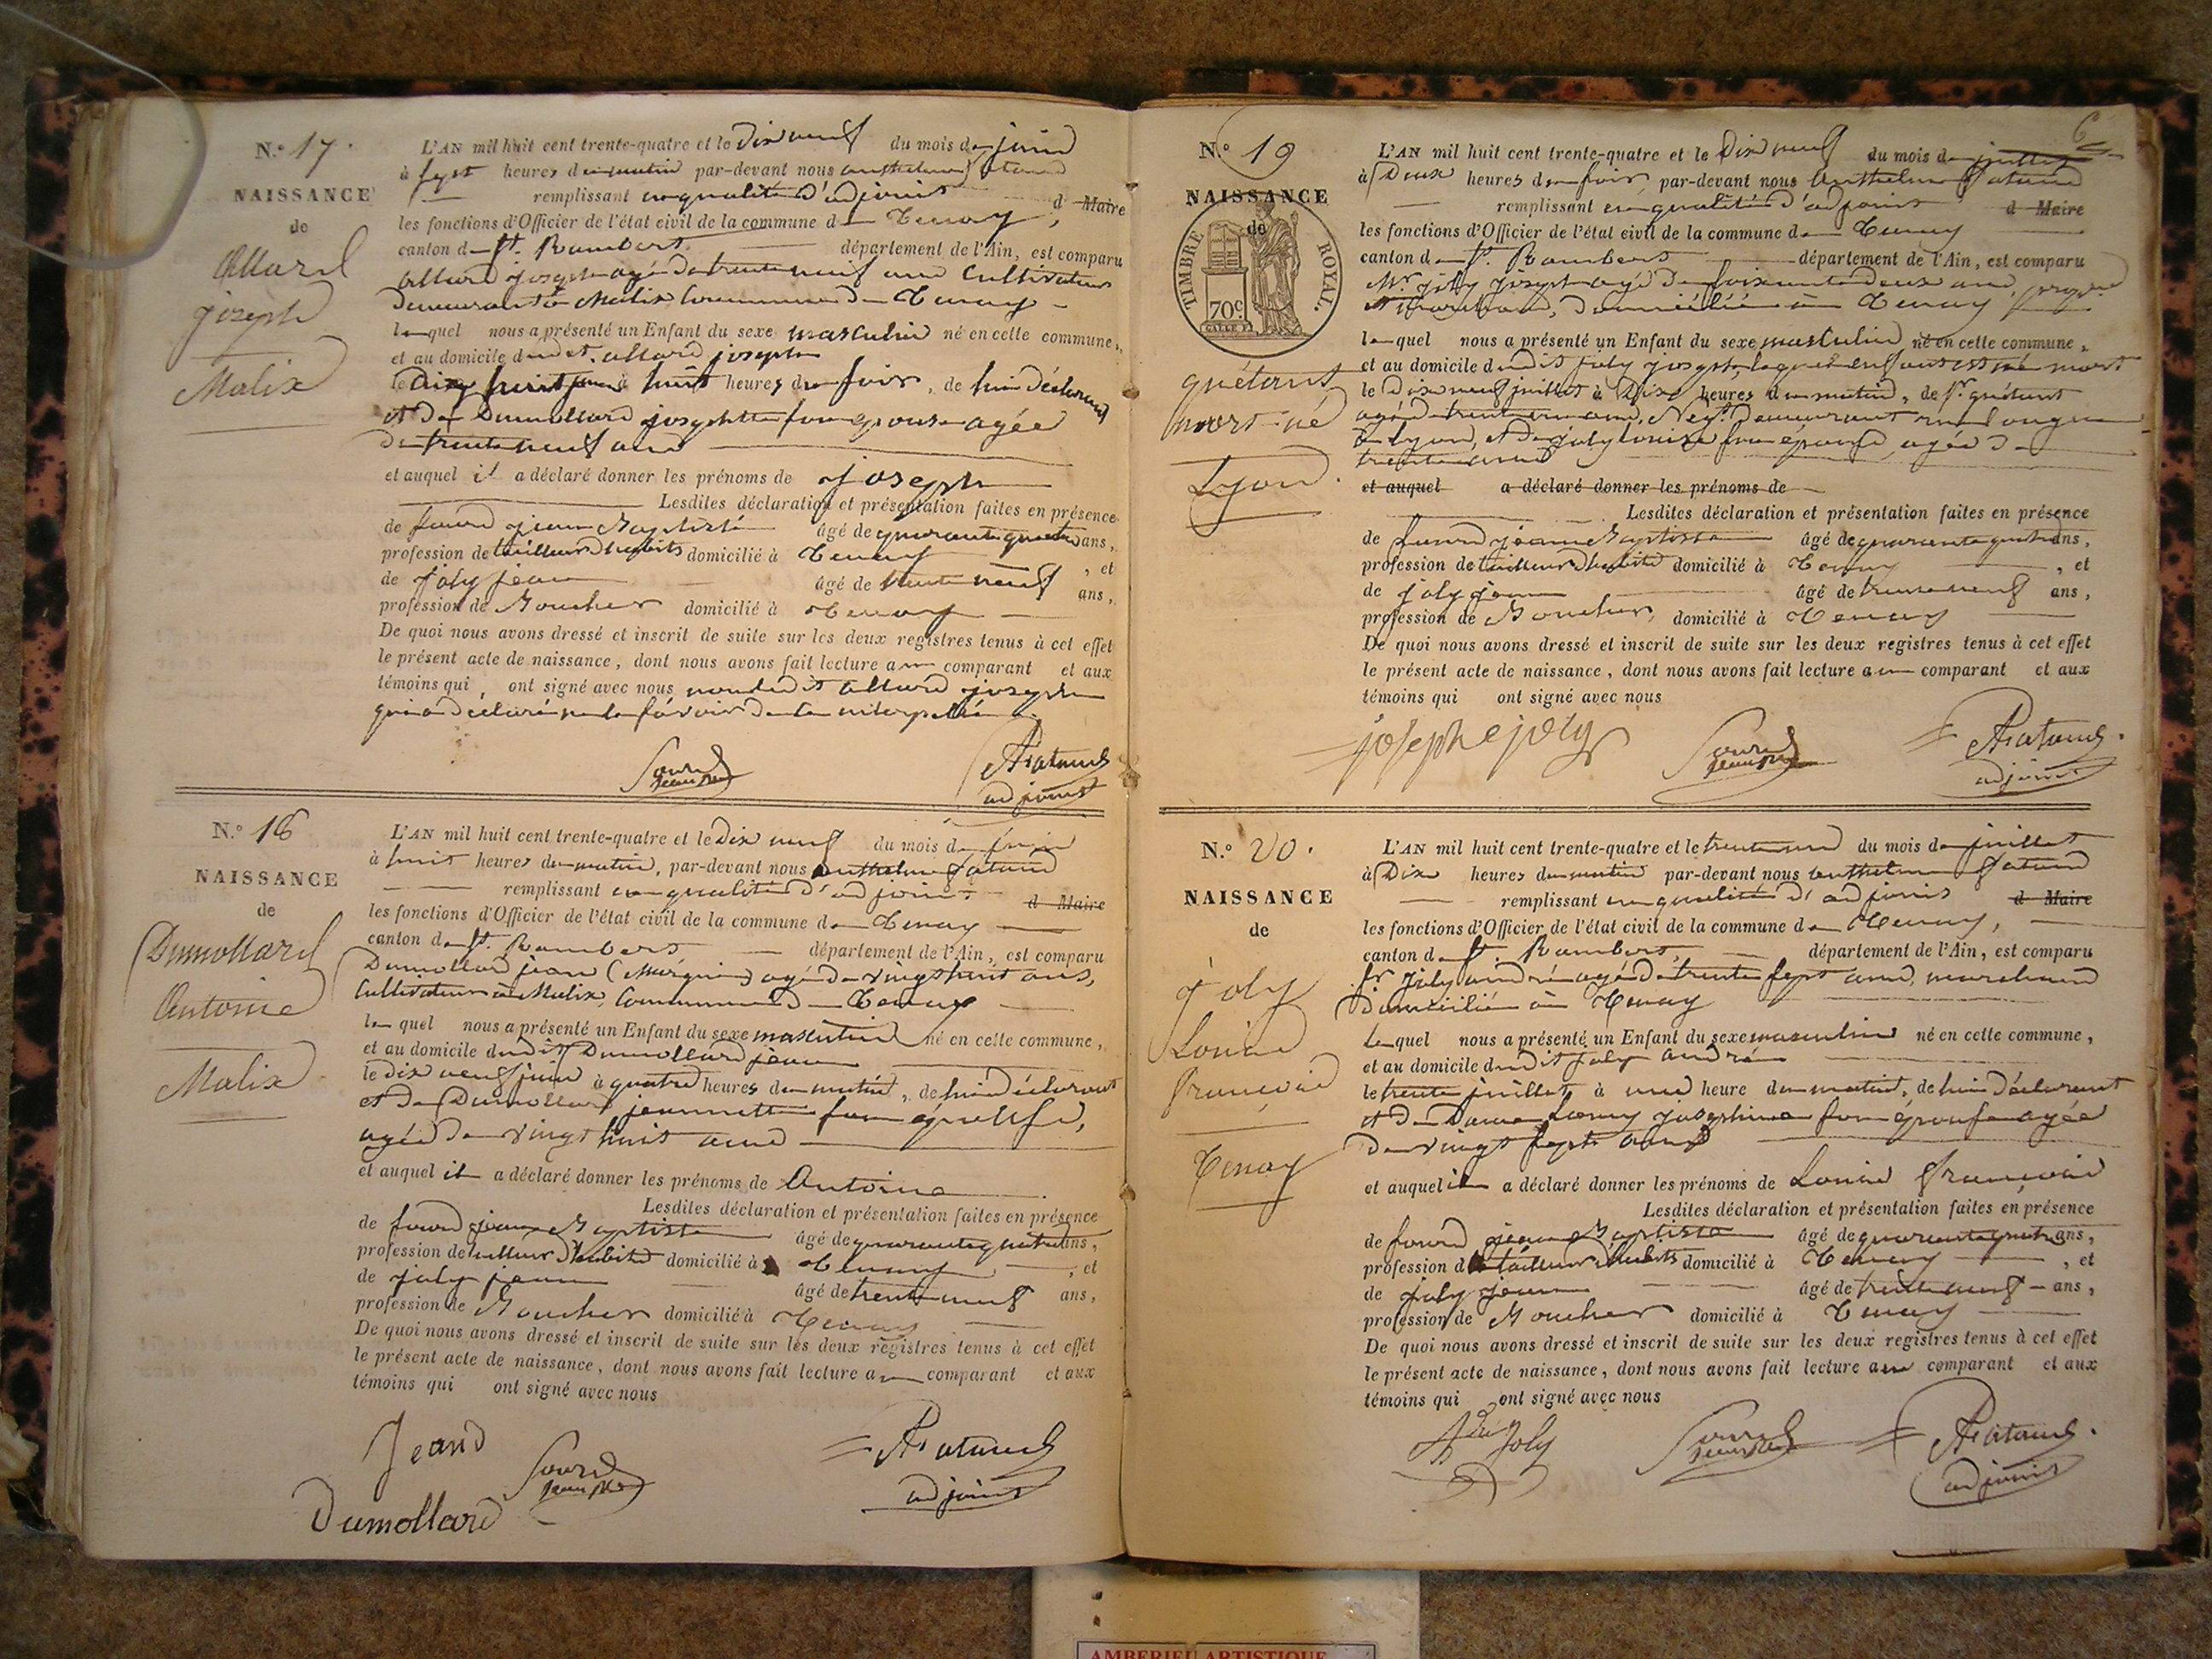 N.° 17.
NAISSANCE
de
Allard
joseph
Malix
L'AN mil huit cent trente-quatre et le Dix neuf du mois de juin
à sept heures du matin par-devant nous anthelme
remplissant en qualité d'adjoint d Maire
les fonctions d'Officier de l'état civil de la commune de Tenay,
canton de St. Rambert département de l'Ain, est comparu
allard joseph agé de trente neuf ans Cultivateur
demeurant à Malix Commune de Tenay
lequel nous a présenté un Enfant du sexe masculin né en cette commune,
et au domicile dudit allard joseph
le Dix huit juin à huit heures du soir, de lui déclarant
et de Dumollard josephte son épouse agée
de trente neuf ans
et auquel il a déclaré donner les prénoms de joseph
Lesdites déclaration et présentation faites en présence
de favrd jean Baptiste âgé de quarante quatre ans,
profession de tailleur d'habits domicilié à Tenay, et
de joly jean âgé de trente neuf ans,
profession de Boucher domicilié à Tenay
De quoi nous avons dressé et inscrit de suite sur les deux registres tenus à cet effet
le présent acte de naissance, dont nous avons fait lecture au comparant et aux
témoins qui, ont signé avec nous non ledit allard joseph
qui a déclaré ne le savoir de ce interpellé
adjoint
N.° 18
NAISSANCE
de
Dumollard
Antoine
Malix
L'AN mil huit cent trente-quatre et le Dix neuf du mois de juin
à huit heures du matin, par-devant nous anthelme
remplissant en qualité d'adjoint d Maire
les fonctions d'Officier de l'état civil de la commune de Tenay
canton de St. Rambert département de l'Ain, est comparu
Dumollard jean agé de vingt huit ans,
Cultivateur à Malix Commune de Tenay
lequel nous a présenté un Enfant du sexe masculin né en cette commune,
et au domicile dudit Dumollard jean
le dix neuf juin à quatre heures du matin, de lui déclarant
et de Dumollard jeannette son épouse,
agée de vingt huit ans
et auquel il a déclaré donner les prénoms de Antoine
Lesdites déclaration et présentation faites en présence
de jean Baptiste âgé de quarante quatre ans,
profession de tailleur d'habits domicilié à Tenay, et
de joly jean âgé de trente neuf ans,
profession de Boucher domicilié à Tenay
De quoi nous avons dressé et inscrit de suite sur les deux registres tenus à cet effet
le présent acte de naissance, dont nous avons fait lecture au comparant et aux
témoins qui ont signé avec nous
Jean
Dumollard
adjoint
6
N.° 19
NAISSANCE
de
TIMBRE ROYAL.
70c
quétant
mort-né
Lyon.
L'AN mil huit cent trente-quatre et le Dix neuf du mois de juillet
à Deux heures du soir, par-devant nous Anthelme
remplissant en qualité d'adjoint d Maire
les fonctions d'Officier de l'état civil de la commune de Tenay
canton de St. Rambert département de l'Ain, est comparu
Mr. joly joseph agé de soixante deux ans,
domicilié à Tenay
lequel nous a présenté un Enfant du sexe masculin né en cette commune,
et au domicile dudit joly joseph lequel enfant est né mort
le Dix neuf juillet à Dix heures du matin, de Sr. quétant
agé de trente un ans, Negt. demeurant rue longue
à lyon, et de joly louise son épouse, agée de
trente ans
et auquel a déclaré donner les prénoms de
Lesdites déclaration et présentation faites en présence
de jean Baptiste âgé de quarante quatre ans,
profession de tailleur d'habits domicilié à Tenay, et
de joly jean âgé de trente neuf ans,
profession de Boucher, domicilié à Tenay
De quoi nous avons dressé et inscrit de suite sur les deux registres tenus à cet effet
le présent acte de naissance, dont nous avons fait lecture au comparant et aux
témoins qui ont signé avec nous
josephe joly
adjoint
N.° 20.
NAISSANCE
de
Joly
Louis
françois
Tenay
L'AN mil huit cent trente-quatre et le trente un du mois de juillet
à Dix heures du matin par-devant nous anthelme
remplissant en qualité d'adjoint d Maire
les fonctions d'Officier de l'état civil de la commune de Tenay,
canton de St. Rambert, département de l'Ain, est comparu
Sr. joly andré agé de trente sept ans, marchand
domicilié à Tenay
lequel nous a présenté un Enfant du sexe masculin né en cette commune,
et au domicile dudit joly andré
le trente juillet à une heure du matin, de lui déclarant
et de Dame josephine son épouse agée
de vingt sept ans
et auquel il a déclaré donner les prénoms de Louis françois
Lesdites déclaration et présentation faites en présence
de jean Baptiste âgé de quarante quatre ans,
profession de tailleur d'habits domicilié à Tenay, et
de joly jean âgé de trente neuf ans,
profession de Boucher domicilié à Tenay
De quoi nous avons dressé et inscrit de suite sur les deux registres tenus à cet effet
le présent acte de naissance, dont nous avons fait lecture au comparant et aux
témoins qui ont signé avec nous
Joly
adjoint
AMBERIEU ARTISTIQUE